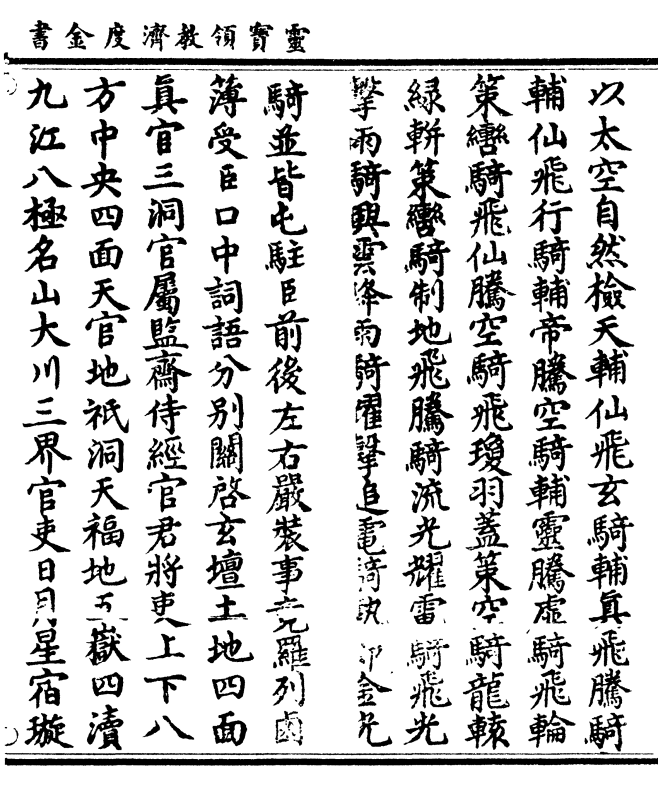 靈寶領教濟度金書
以太空自然檢天輔仙飛玄騎輔真飛騰騎
輔仙飛行騎輔帝騰空騎輔靈騰虛騎飛輪
策轡騎飛仙騰空騎飛瓊羽蓋策空騎龍轅
綠軿策轡騎制地飛騰騎流光耀雷騎飛光
擊雨騎興雲降雨騎躍擊追電騎執金光
騎並皆屯駐臣前後左右嚴裝事竟羅列鹵
薄受臣口中詞語分別關啓玄壇土地四面
真官三洞官屬監齋侍經官君將吏上下八
方中央四面天官地祇洞天福地五嶽四瀆
九江八極名山大川三界官吏日月星宿璇